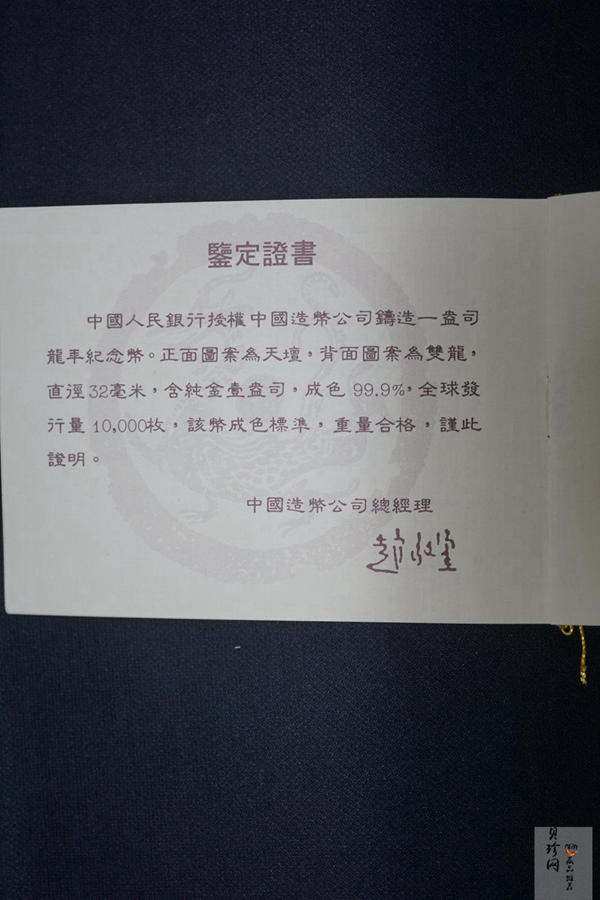 鑒定證書
中國人民銀行授權中國造幣公司鑄造一盎司
龍年紀念幣。正面圖案為天壇，背面圖案為雙龍，
直徑32毫米，含純金壹盎司，成色 99.9%，全球發
行量 10,000枚，該幣成色標準，重量合格，謹此
證明。
中國造幣公司總經理
貝珍网